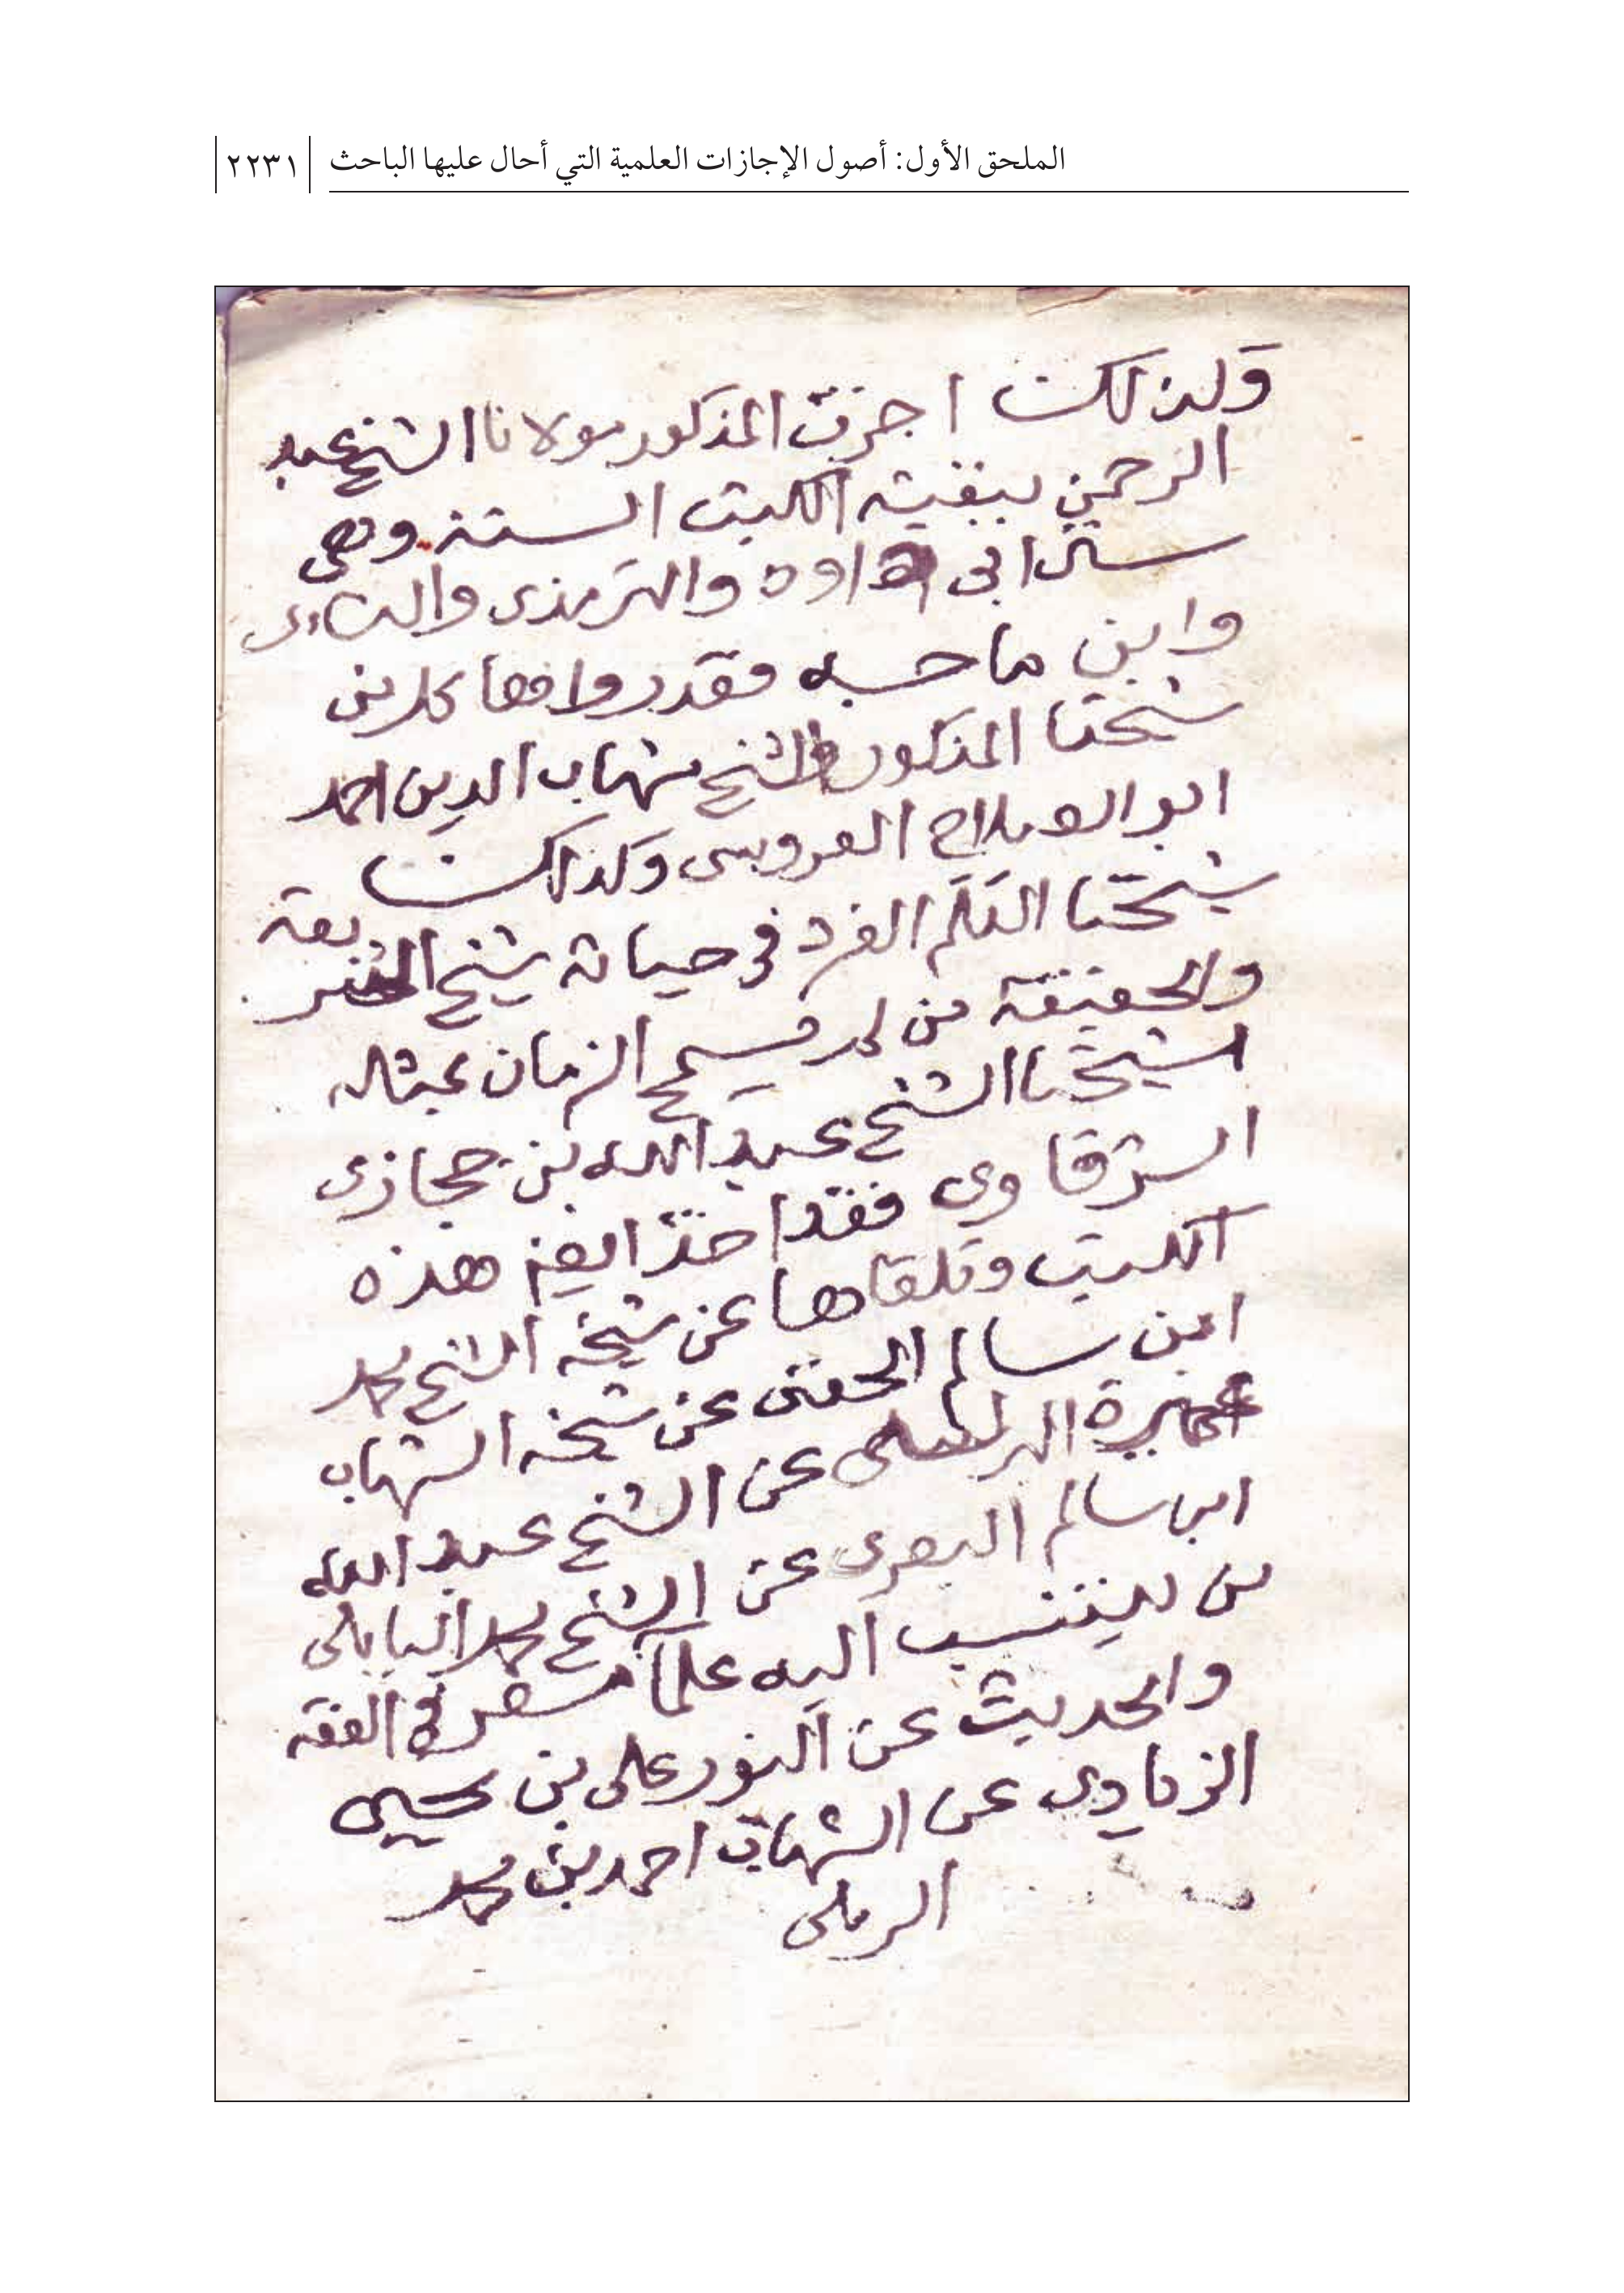 الملحق الأول: أصول الإجازات العلمية التي أحال عليها الباحث ٢٢٣١
وكذلك اجزت المذكور مولانا الشيخ عبد
الرحمن ببقيته الكتب الستة وهى
سنن ابى داود والترمذى والنساءى
وابن ماجه فقد رواها كل من
شيخنا المذكور الشيخ شهاب الدين احمد
ابو الصلاح العروسى وكذلك
شيختنا العلم الفرد فى حياته شيخ الشريعة
والحقيقة من لم يسمح الزمان بمثاله
شيخنا الشيخ عبد الله بن حجازى
الشرقاوى فقد اخذ ايضا هذه
الكتب وتلقاها عن شيخه الشيخ محمد
ابن سالم الحفنى عن شيخه الشهاب
عن الشيخ عبد الله
ابن سالم البصرى عن الشيخ محمد البابلى
من ينتسب اليه علمآ مصر فى الفقه
والحديث عن النور على بن يحيى
الزيادى عن الشهاب احمد بن محمد
الرملى